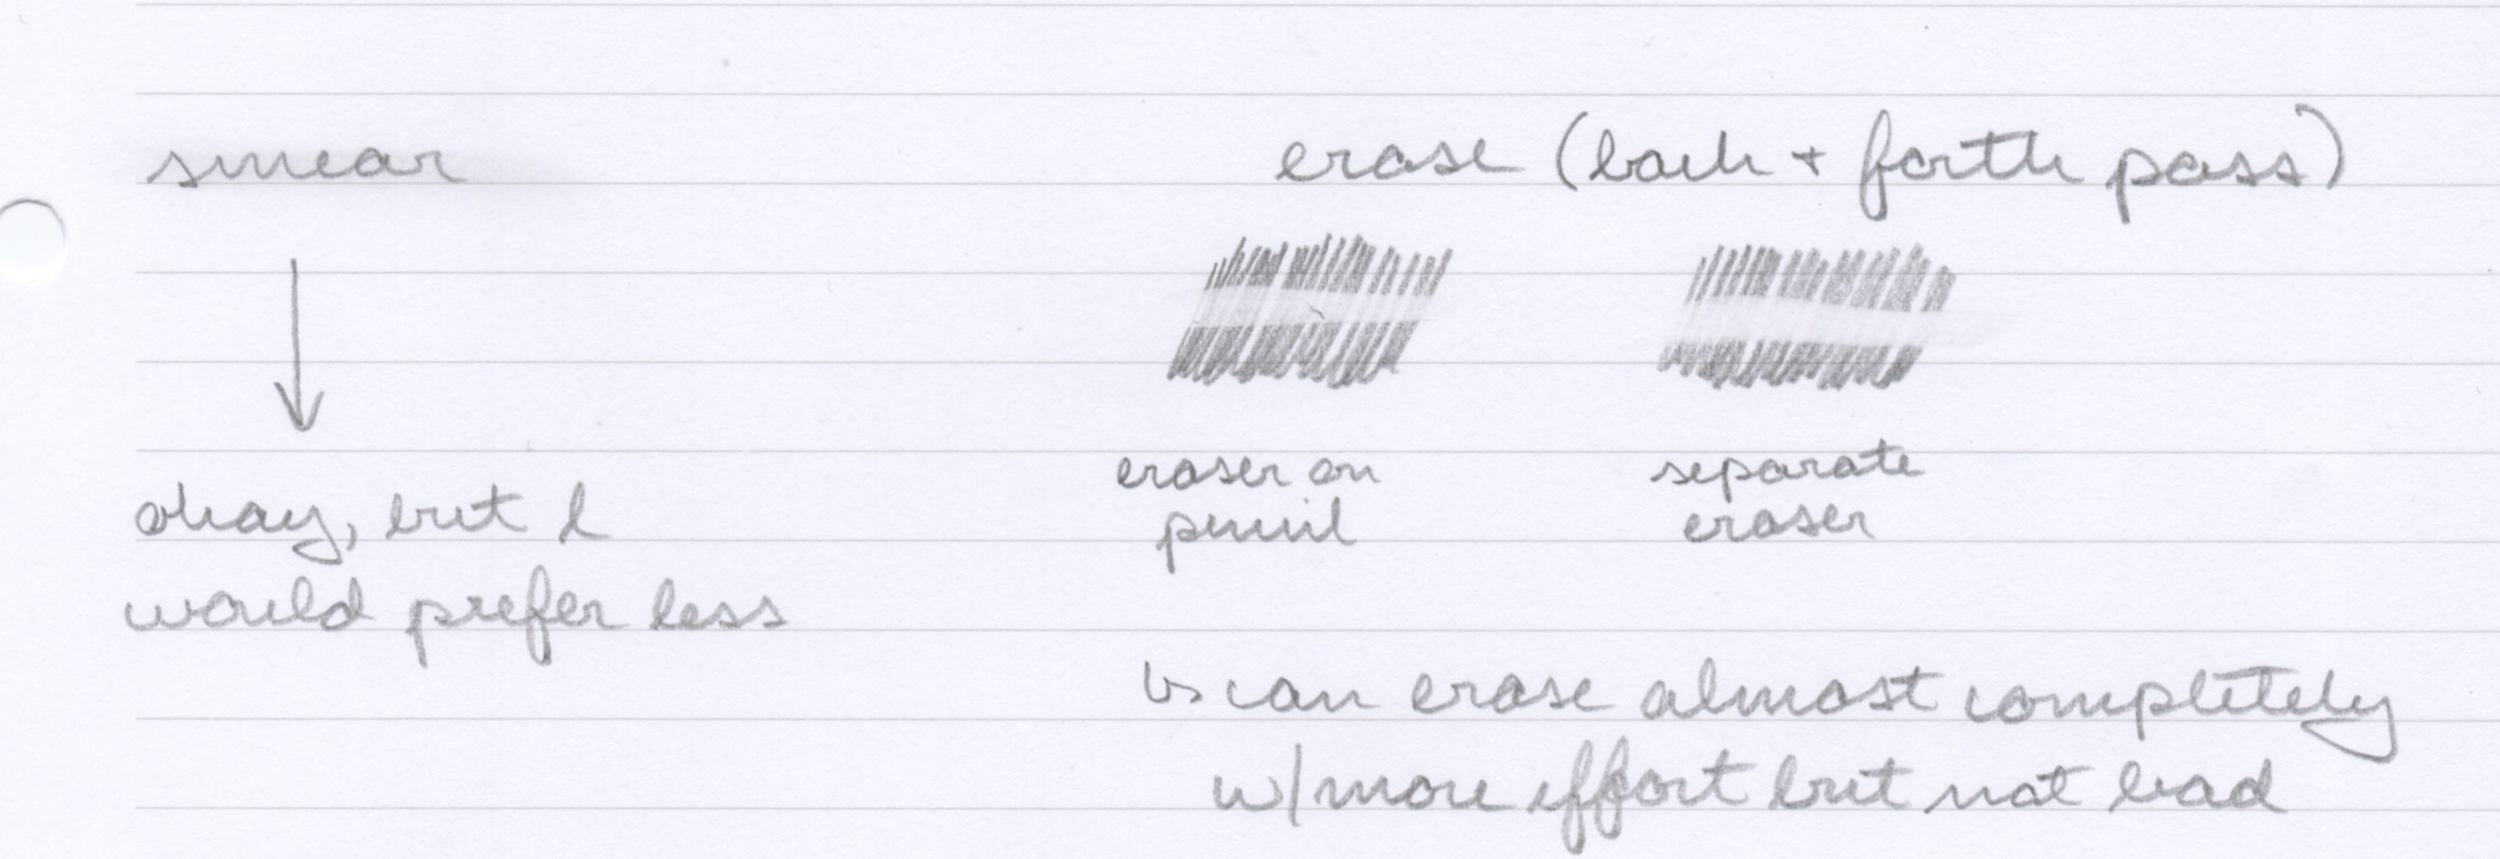 smear
erase (back + forth pass)
eraser on
pencil
separate
eraser
okay, but I
would prefer less
↳ can erase almost completely
w/ more effort but not bad